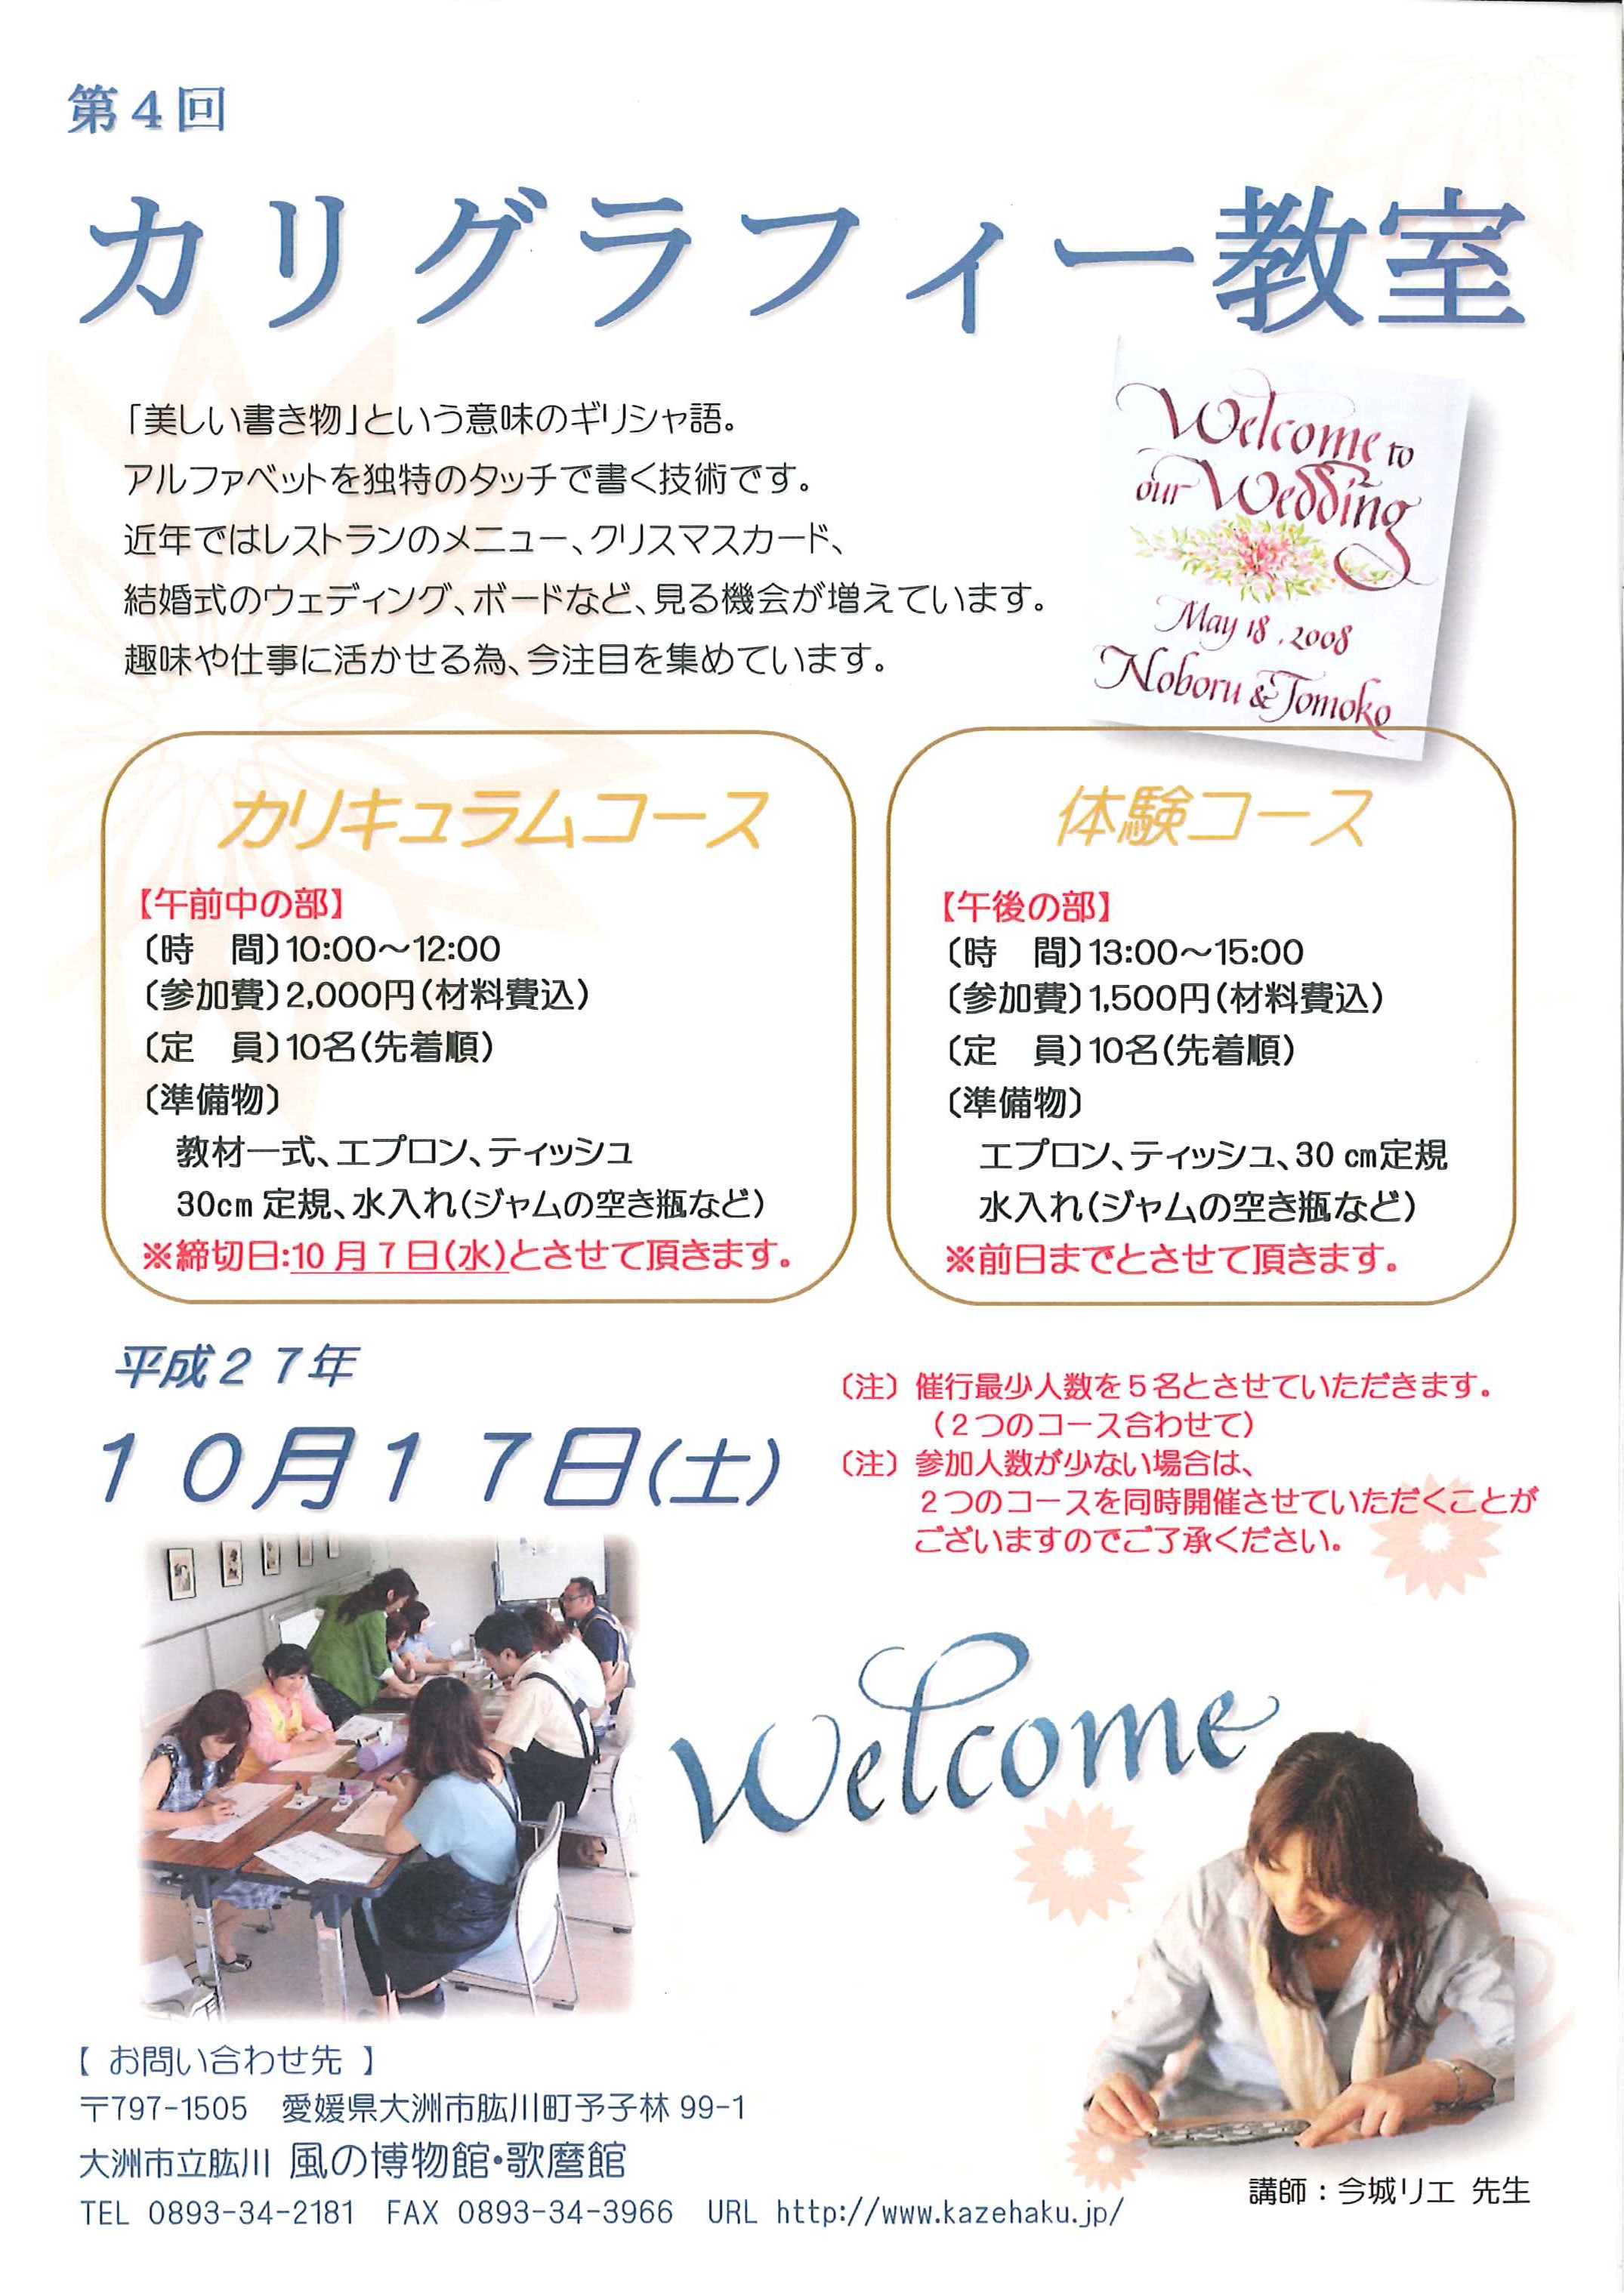 第4回
カリグラフィー教室
「美しい書き物」という意味のギリシャ語。
アルファベットを独特のタッチで書く技術です。
近年ではレストランのメニュー、クリスマスカード、
結婚式のウェディング、ボードなど、見る機会が増えています。
趣味や仕事に活かせる為、今注目を集めています。
Welcome to
our Wedding
May 18, 2008
Noboru & Tomoko
カリキュラムコース
【午前中の部】
〔時　間〕10:00～12:00
〔参加費〕2,000円(材料費込)
〔定　員〕10名(先着順)
〔準備物〕
教材一式、エプロン、ティッシュ
30cm 定規、水入れ(ジャムの空き瓶など)
※締切日:10月7日(水)とさせて頂きます。
体験コース
【午後の部】
〔時　間〕13:00～15:00
〔参加費〕1,500円(材料費込)
〔定　員〕10名(先着順)
〔準備物〕
エプロン、ティッシュ、30 cm定規
水入れ(ジャムの空き瓶など)
※前日までとさせて頂きます。
平成27年
10月17日(土)
〔注〕催行最少人数を5名とさせていただきます。
(2つのコース合わせて)
〔注〕参加人数が少ない場合は、
2つのコースを同時開催させていただくことが
ございますのでご了承ください。
Welcome
【 お問い合わせ先 】
〒797-1505　愛媛県大洲市肱川町予子林 99-1
大洲市立肱川 風の博物館・歌麿館
TEL 0893-34-2181　FAX 0893-34-3966　URL http://www.kazehaku.jp/
講師：今城リエ 先生